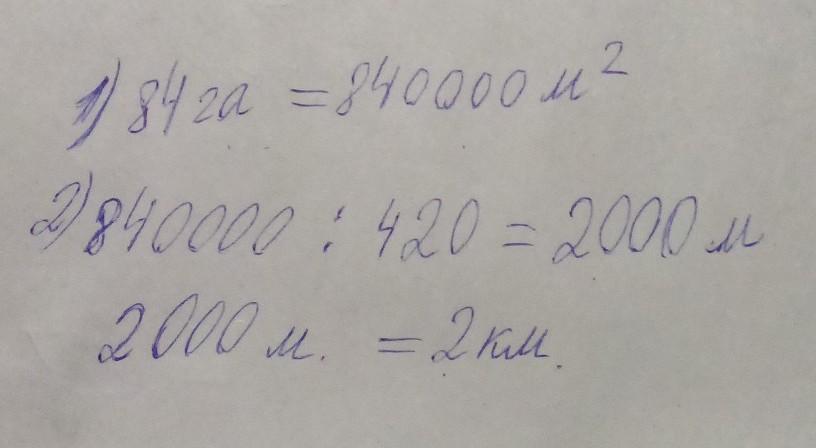 1) 84 га = 840000 м²
2) 840000 : 420 = 2000 м
2000 м. = 2 км.